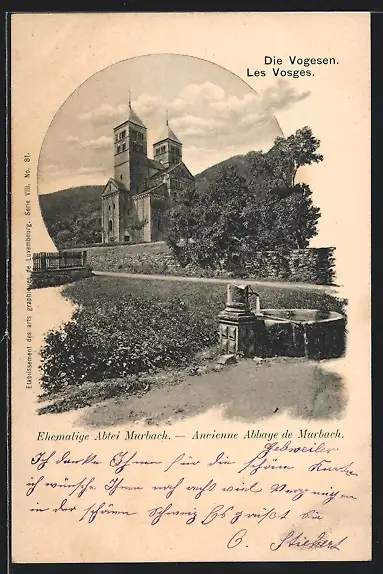 Die Vogesen.
Les Vosges.
Etablissement des arts graphiques de Luxembourg. Serie VIII. No. 81.
Ehemalige Abtei Murbach. — Ancienne Abbaye de Murbach.
Gebweiler
Ich danke Ihnen für die schöne Karte
ich wünsche Ihnen noch recht viel Vergnügen
in der schönen Schweiz Es grüßt Sie